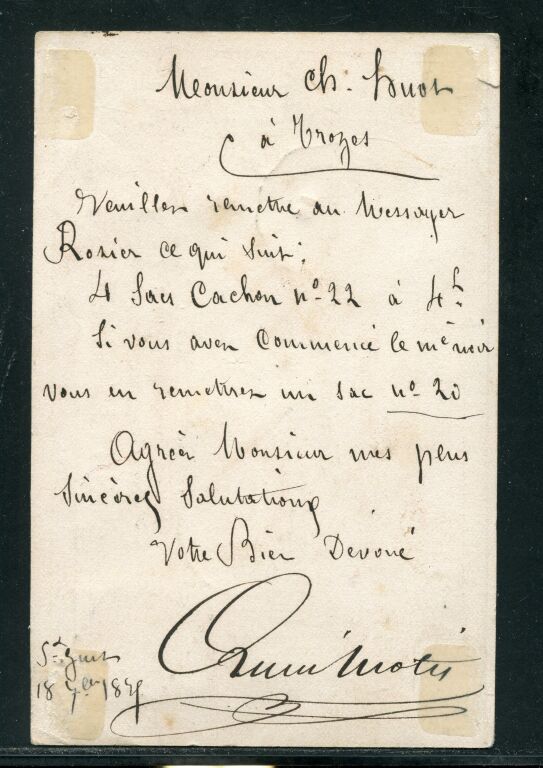 Monsieur Ch. Huot
à Troyes
Veuillez remettre au Messager
Rosier ce qui suit:
4 Sacs Cachou nº 22 à 4 h
Si vous avez Commencé le mé noir
vous en remettrez un sac nº 20
Agréer Monsieur mes plus
Sincères Salutations
Votre Bien Dévoué
St Just
18 7bre 18